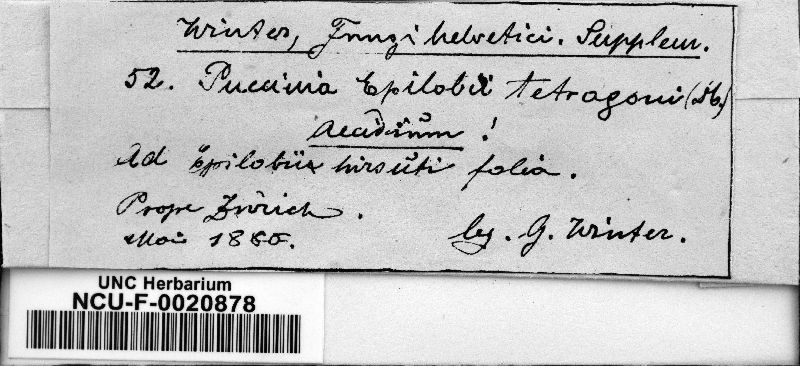 Winter, Fungi helvetici. Supplem.
52. Puccinia Epilobii tetragoni (DC.)
Aecidium!
Ad Epilobii hirsuti folia.
Prope Zürich.
Mai 1880. leg. G. Winter.
UNC Herbarium
NCU-F-0020878